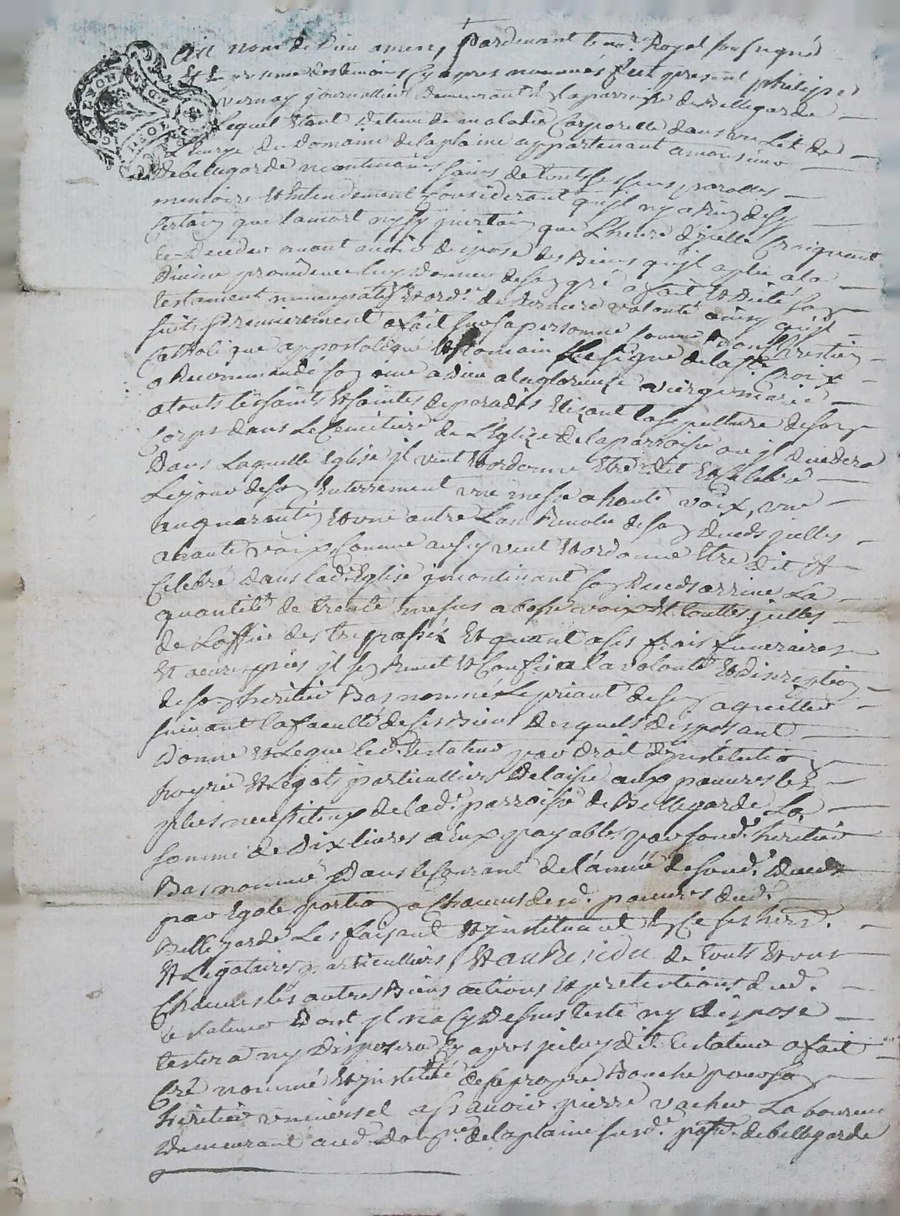 Au nom de dieu amen, pardevant le nore. Royal sousigné
Et en presence des temoins cy apres nommes fut present philipe
vernay journallier demeurant à la parroisse de Bellegarde
Lequel Etant detenu de maladie Corporelle dans un Lit de
du Domaine de la plaine appartenant a monsieur
de bellegarde neantmoins sains de touts ses sens parolles
memoire Et Entendement Considerant qu'il n'y a Rien de sy
Certain que la mort ny sy incertain que L'heure d'ycelle Craignant
de deceder avant avoir disposé des Biens qu'il a plu a la
divine providence luy donner de son gré a fait Et dicté son
testament nuncupatif Et ordre. de derniere volonté ainsy qu'il
suit premierement a fait sur sa personne comme bon Chrestien
Cattolique appostolique Et Romain Le signe de la ste Croix
a Recommandé son ame a dieu a la glorieuse vierge marie
a touts les saints Et saintes de paradis Elizant la sepulture de son
Corps dans le Cemitiere de L'Eglise de la parroisse ou il decedera
dans Laquelle Eglise il veut Et ordonne Etre dit Et Celebré
Le jour de son Enterrement une messe a haute voix, une
au quarantin Et une autre L'an Revolu de son deceds ycelles
a haute voix, Comme aussy veut Et ordonne Etre dit Et
Celebré dans lade. Eglise incontinant son deceds arrivé La
quantité de trente messes a basse voix Et touttes ycelles
de L'office des trepassés Et quant a ses frais funeraires
Et oeuvres pies il se Remet Et Confie a la volonté Et discretion
de son heritier Bas nommé Le priant de s'en aquitter
suivant la faculté de ses Biens desquels disposant
donne Et legue led. testateur par droit d'institution
hoyrie Et legats particulliers delaisse aux pauvres les
plus necessiteux de lade. parroisse de Bellegarde La
somme de dix livres a Eux payables par sond. heritier
Bas nommé dans le Courant de l'année de sond. deceds
par Egale portion a Chacun desd. pauvres dud.
Bellegarde Les faisant Et instituant En Ce ses hers.
Et Legataires particulliers, Et au Residu de touts Et uns
Chacuns les autres Biens actions Et pretentions dud.
testateur Dont il n'a cy dessus testé ny disposé
testera ny disposera Cy apres iceluy dit testateur a fait
Créé nommé Et institué de sa propre Bouche pour son
heritier universel a scavoir pierre vacher Laboureur
demeurant aud. domne. de la plaine susd. psse. de bellegarde